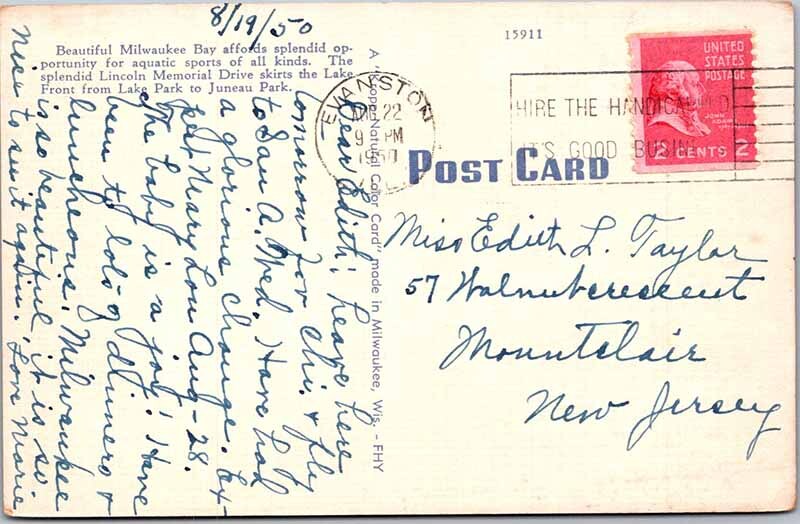 8/19/50
15911
Beautiful Milwaukee Bay affords splendid op-
portunity for aquatic sports of all kinds. The
splendid Lincoln Memorial Drive skirts the Lake
Front from Lake Park to Juneau Park.
Dear Edith; Leave here
tomorrow for Chi. & fly
to San A. Wed. Have had
a glorious change. Ex-
pect Mary Lou Aug-28.
The baby is a joy! Have
been to lots of dinners &
luncheons. Milwaukee
is so beautiful, it is so
nice to see it again. Love Marie
A "Kropp Natural Color Card" made in Milwaukee, Wis. - FHY
EVANSTON
AUG 22
9 PM
1950
HIRE THE HANDICAPPED
IT'S GOOD BUSINESS
UNITED
STATES
POSTAGE
JOHN
ADAMS
2 CENTS 2
POST CARD
Miss Edith L. Taylor
57 Walnut crescent
Mountclair
New Jersey